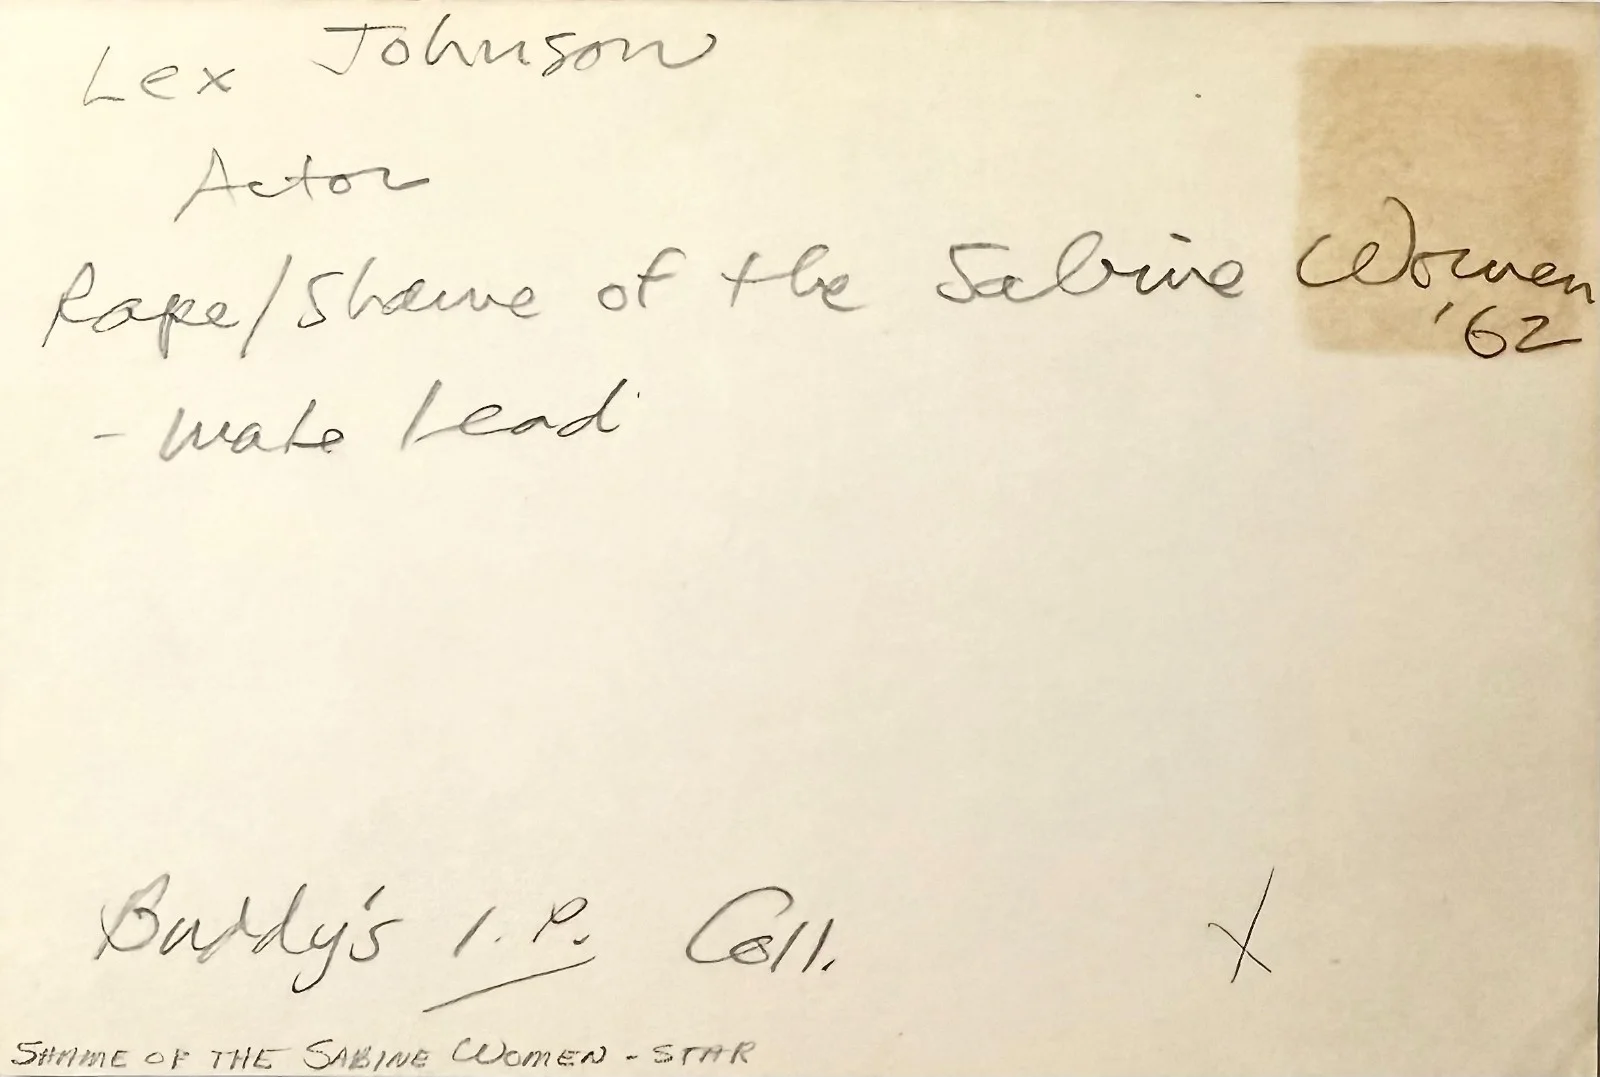 Lex Johnson
Actor
Rape/Shame of the Sabine Women
'62
- male lead
Buddy's I.P. Coll.
X
SHAME OF THE SABINE WOMEN - STAR